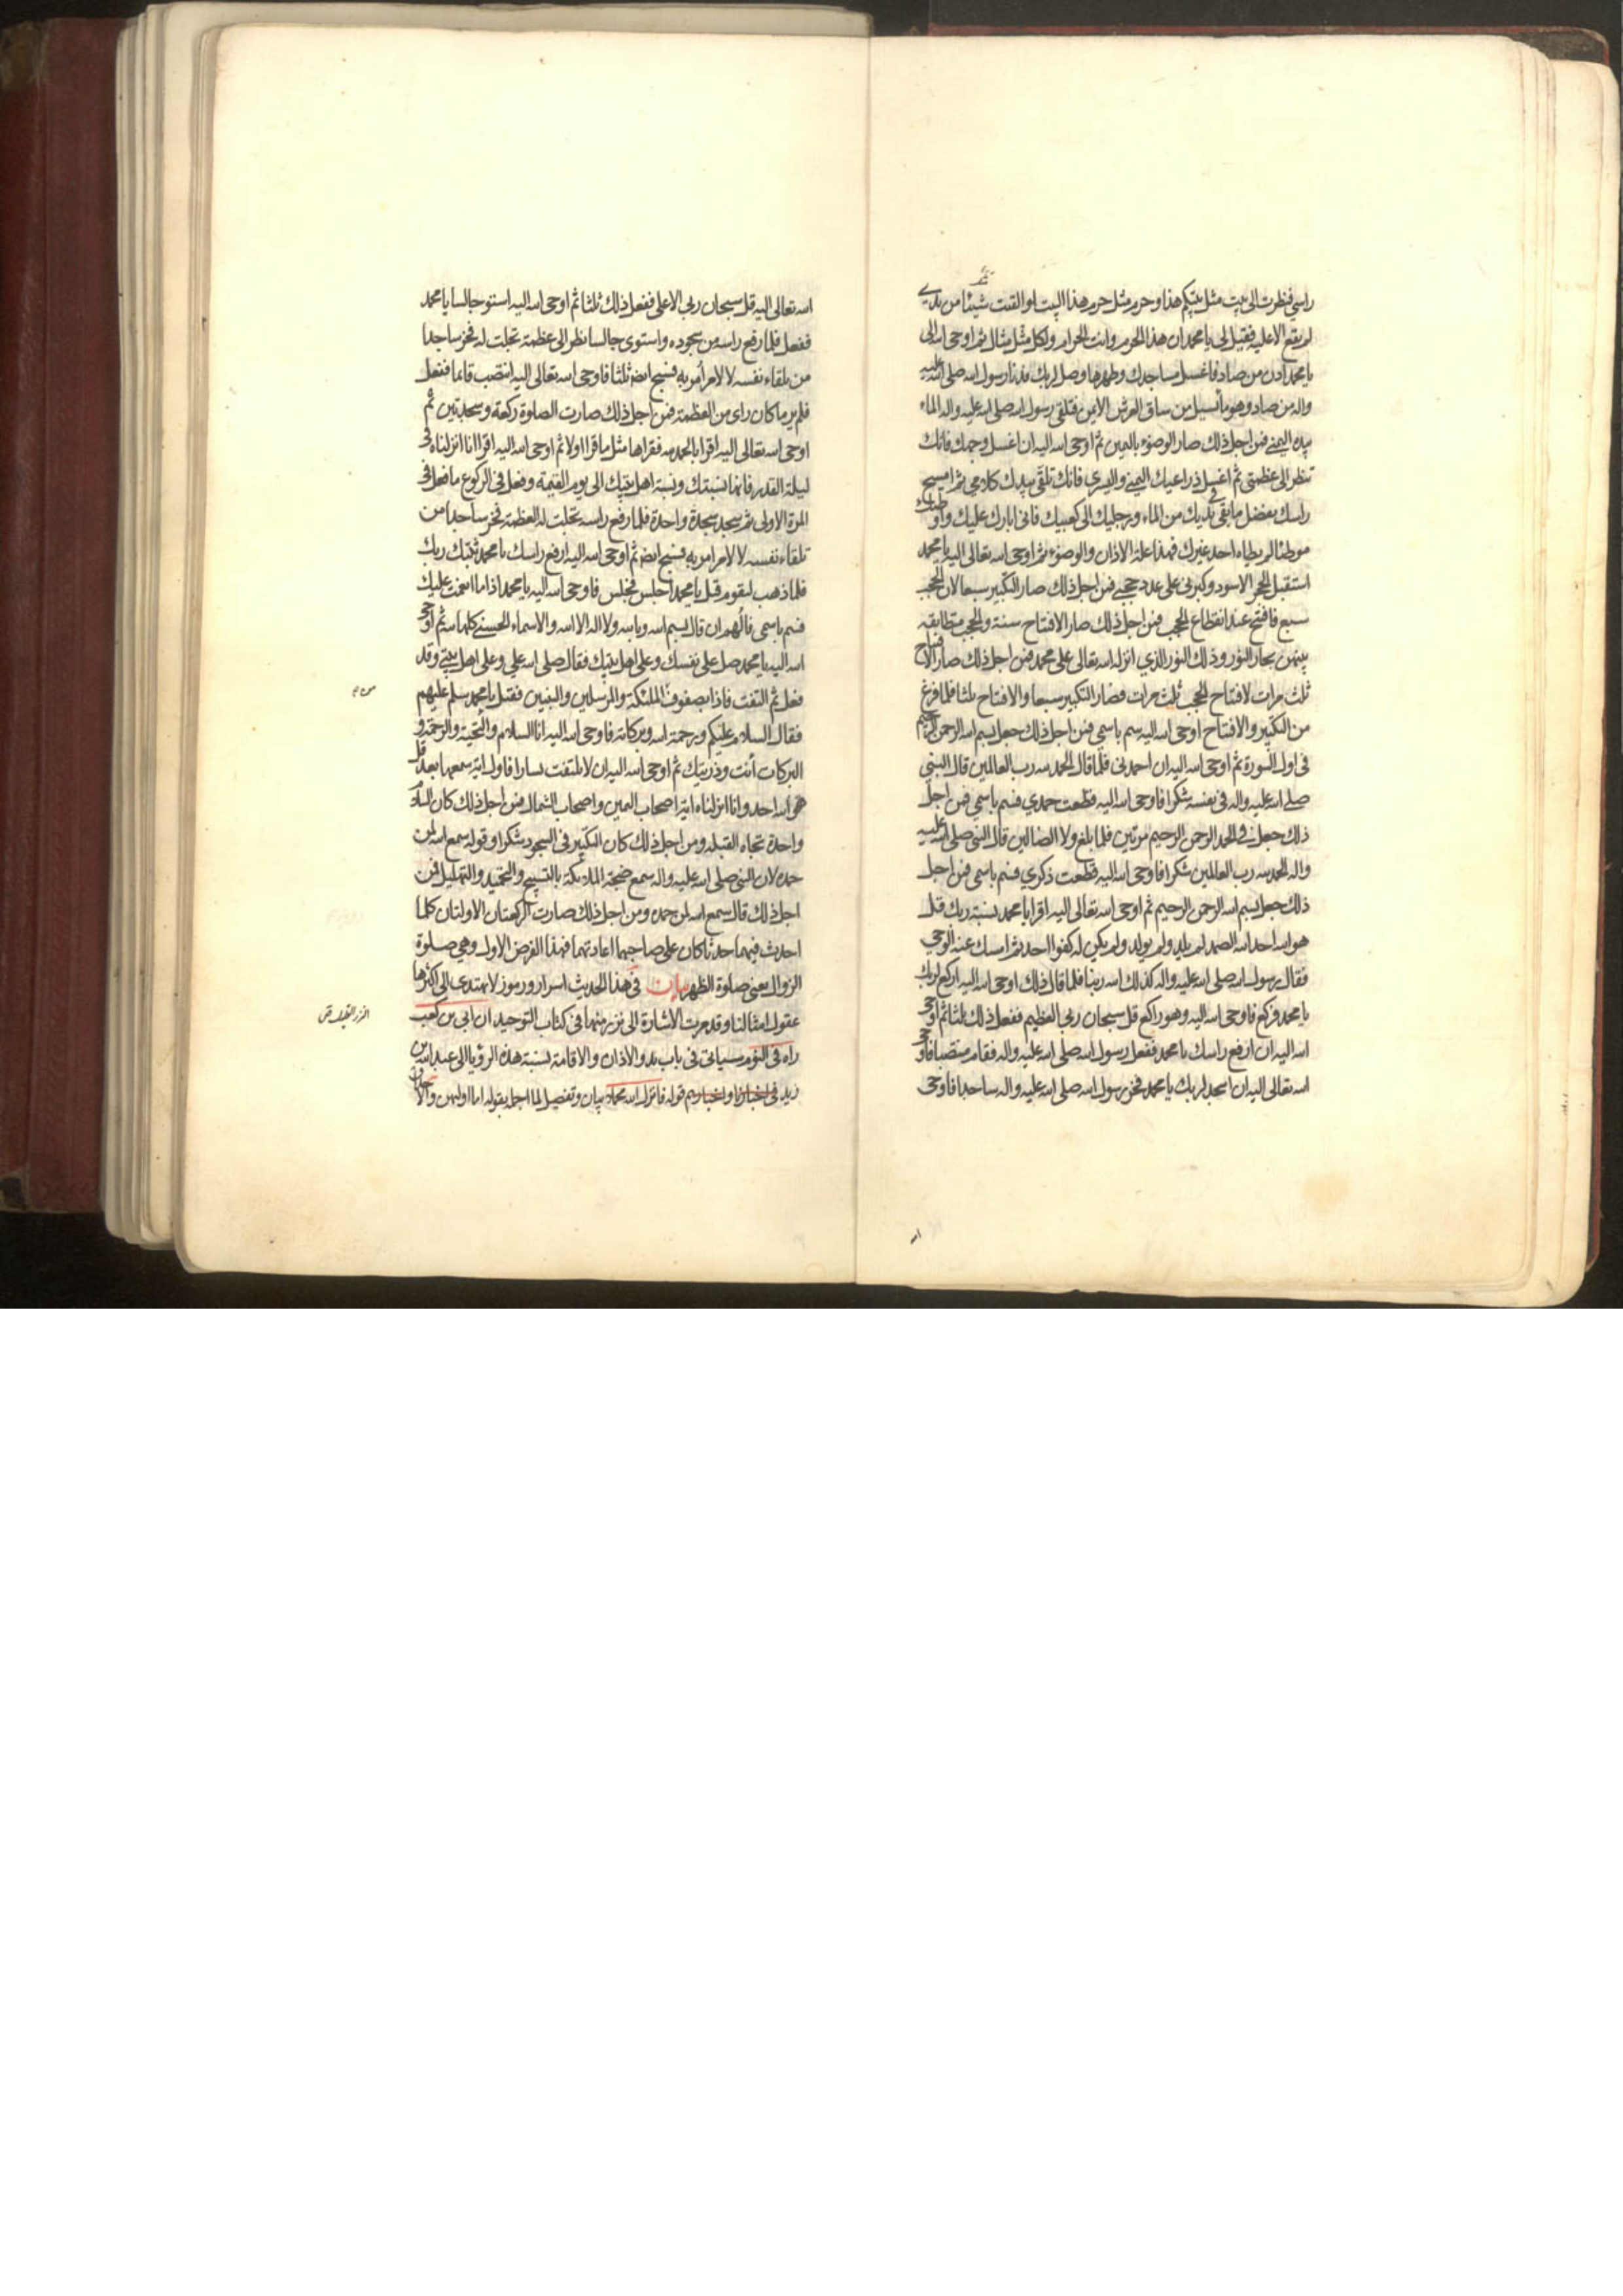 راسي فنظرت الى بيت مثل بيتكم هذا وحرم مثل حرم هذا البيت لو القيت شيئا من يدي
لم يقع الا عليه فقيل لي يا محمد ان هذا الحرم وانت الحرام ولكل مثل مثال ثم اوحى الله الى
يا محمد ادن من صاد فاغسل مساجدك وطهرها وصل لربك فدنا رسول الله صلى الله عليه
واله من صاد وهو ماء يسيل من ساق العرش الايمن فتلقى رسول الله صلى الله عليه واله الماء
بيده اليمنى فمن اجل ذلك صار الوضوء باليمين ثم اوحى الله اليه ان اغسل وجهك فانك
تنظر الى عظمتي ثم اغسل ذراعيك اليمنى واليسرى فانك تلقى بيدك كلامي ثم امسح
راسك بفضل ما بقي في يديك من الماء ورجليك الى كعبيك فاني ابارك عليك واوطئك
موطئا لم يطاه احد غيرك فهذا علة الاذان والوضوء ثم اوحى الله تعالى اليه يا محمد
استقبل الحجر الاسود وكبرني على عدد حجبي فمن اجل ذلك صار التكبير سبعا لان الحجب
سبع فافتتح عند انقطاع الحجب فمن اجل ذلك صار الافتتاح سنة والحجب متطابقة
بينهن بحار النور وذلك النور الذي انزله الله تعالى على محمد فمن اجل ذلك صار الافتتاح
ثلث مرات لافتتاح الحجب ثلث مرات فصار التكبير سبعا والافتتاح ثلثا فلما فرغ
من التكبير والافتتاح اوحى الله اليه سم باسمي فمن اجل ذلك جعل بسم الله الرحمن الرحيم
في اول السورة ثم اوحى الله اليه ان احمدني فلما قال الحمد لله رب العالمين قال النبي
صلى الله عليه واله في نفسه شكرا فاوحى الله اليه قطعت حمدي فسم باسمي فمن اجل
ذلك جعل في الحمد الرحمن الرحيم مرتين فلما بلغ ولا الضالين قال النبي صلى الله عليه
واله الحمد لله رب العالمين شكرا فاوحى الله اليه قطعت ذكري فسم باسمي فمن اجل
ذلك جعل بسم الله الرحمن الرحيم ثم اوحى الله تعالى اليه اقرا يا محمد نسبة ربك قل
هو الله احد الله الصمد لم يلد ولم يولد ولم يكن له كفوا احد ثم امسك عنه الوحي
فقال رسول الله صلى الله عليه واله كذلك الله ربنا فلما قال ذلك اوحى الله اليه اركع لربك
يا محمد فركع فاوحى الله اليه وهو راكع قل سبحان ربي العظيم ففعل ذلك ثلثا ثم اوحى
الله اليه ان ارفع راسك يا محمد ففعل رسول الله صلى الله عليه واله فقام منتصبا فاوحى
الله تعالى اليه ان اسجد لربك يا محمد فخر رسول الله صلى الله عليه واله ساجدا فاوحى
الله
الله تعالى اليه قل سبحان ربي الاعلى ففعل ذلك ثلثا ثم اوحى الله اليه استو جالسا يا محمد
ففعل فلما رفع راسه من سجوده واستوى جالسا نظر الى عظمة تجلت له فخر ساجدا
من تلقاء نفسه لا لامر أمر به فسبح ايضا ثلثا فاوحى الله تعالى اليه انتصب قائما ففعل
فلم ير ما كان راى من العظمة فمن اجل ذلك صارت الصلوة ركعة وسجدتين ثم
اوحى الله تعالى اليه اقرا بالحمد لله فقراها مثل ما قرا اولا ثم اوحى الله اليه اقرا انا انزلناه في
ليلة القدر فانها نسبتك ونسبة اهل بيتك الى يوم القيمة وفعل في الركوع ما فعل في
المرة الاولى ثم سجد سجدة واحدة فلما رفع راسه تجلت له العظمة فخر ساجدا من
تلقاء نفسه لا لامر امر به فسبح ايضا ثم اوحى الله اليه ارفع راسك يا محمد ثبتك ربك
فلما ذهب ليقوم قيل يا محمد اجلس فجلس فاوحى الله اليه يا محمد اذا ما انعمت عليك
فسم باسمي فالهم ان قال بسم الله وبالله ولا اله الا الله والاسماء الحسنى كلها لله ثم اوحى
الله اليه يا محمد صل على نفسك وعلى اهل بيتك فقال صلى الله علي وعلى اهل بيتي وقد
فعل ثم التفت فاذا بصفوف الملئكة والمرسلين والنبيين فقيل يا محمد سلم عليهم
فقال السلام عليكم ورحمة الله وبركاته فاوحى الله اليه انا السلام والتحية والرحمة و
البركات أنت وذريتك ثم اوحى الله اليه ان لا يلتفت يسارا فاول اية سمعها بعد قل
هو الله احد وانا انزلناه اية اصحاب اليمين واصحاب الشمال فمن اجل ذلك كان السلام
واحدة تجاه القبلة ومن اجل ذلك كان التكبير في السجود شكرا وقوله سمع الله لمن
حمده لان النبي صلى الله عليه واله سمع ضجة الملائكة بالتسبيح والتحميد والتهليل فمن
اجل ذلك قال سمع الله لمن حمده ومن اجل ذلك صارت الركعتان الاولتان كلما
احدث فيهما حدثا كان على صاحبهما اعادتهما فهذا الفرض الاول وهي صلوة
الزوال يعني صلوة الظهر بيان في هذا الحديث اسرار ورموز لا يهتدى الى اكثرها
عقول امثالنا وقد مرت الاشارة الى نزر منها في كتاب التوحيد ان ابي بن كعب
راه في النوم سياتي في باب بدو الاذان والاقامة نسبة هذه الرؤيا الى عبد الله بن
زيد في اخبارنا واخبارهم قوله فانزل الله محمدا بيان وتفصيل لما اجمله بقوله اما اوليهن
النزر القليل ص